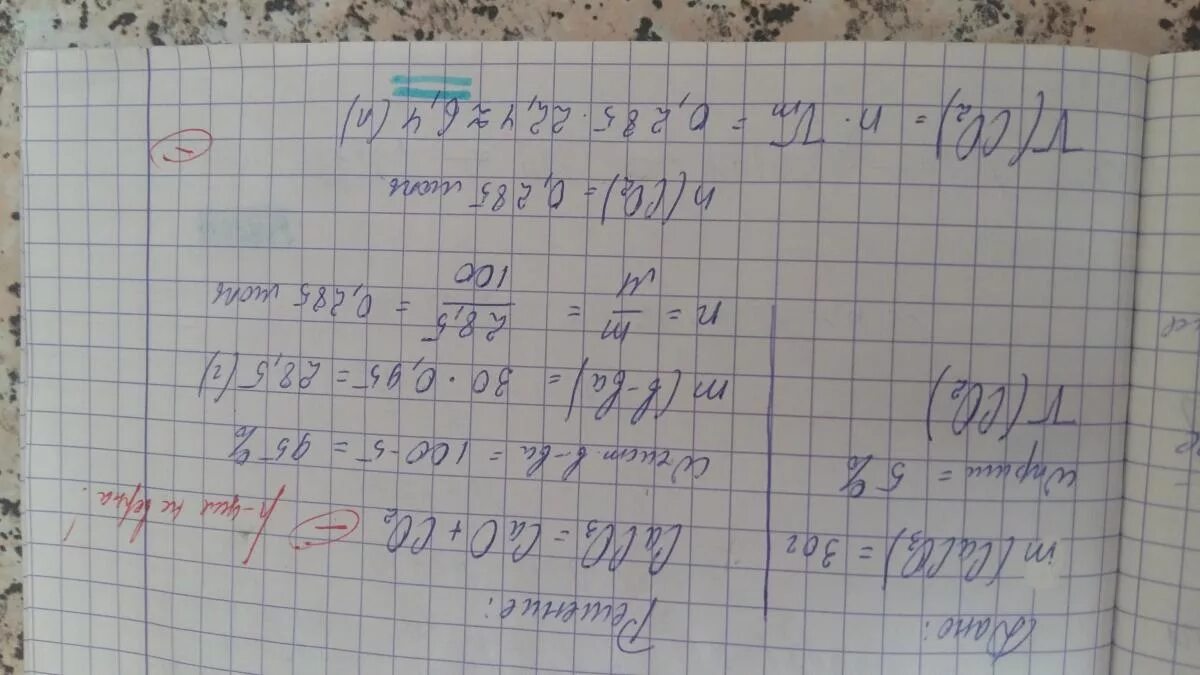 Дано:
m(CaCO₃) = 30г
ωприм = 5%
V(CO₂)
Решение:
CaCO₃ = CaO + CO₂
р-ция не верна!
ω чист. в-ва = 100-5 = 95%
m(в-ва) = 30 · 0,95 = 28,5 (г)
n = m/M = 28,5/100 = 0,285 моль
n(CO₂) = 0,285 моль
V(CO₂) = n · Vm = 0,285 · 22,4 ≈ 6,4 (л)